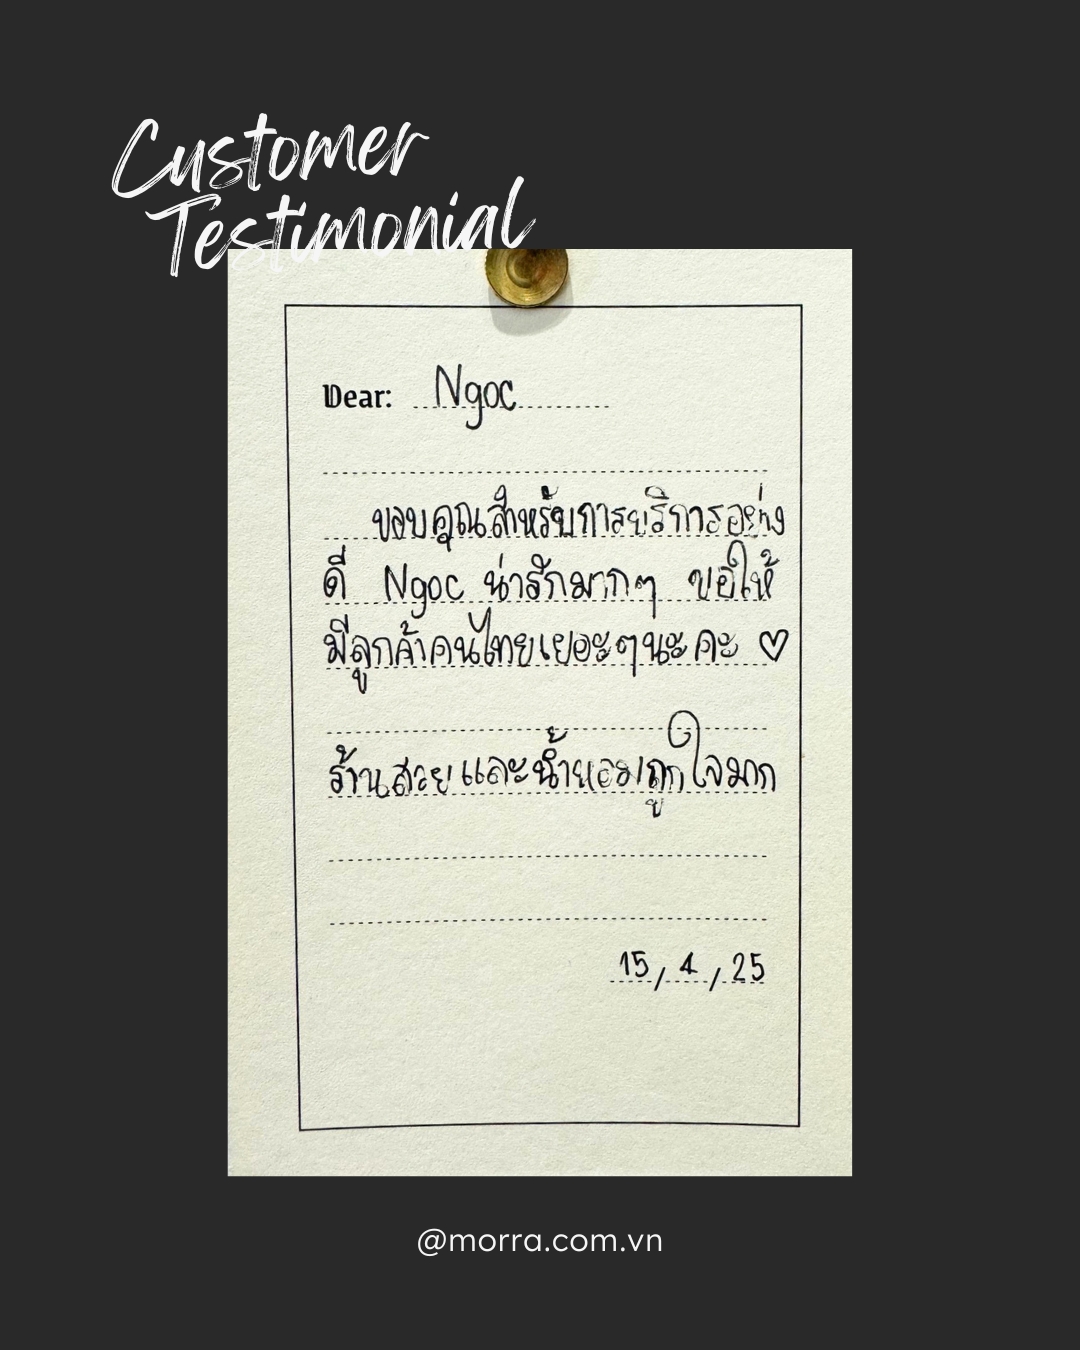 Customer
Testimonial
Dear: Ngoc
ขอบคุณสำหรับการบริการอย่าง
ดี Ngoc น่ารักมากๆ ขอให้
มีลูกค้าคนไทยเยอะๆนะคะ ♡
ร้านสวยและน้ำหอมถูกใจมาก
15/4/25
@morra.com.vn